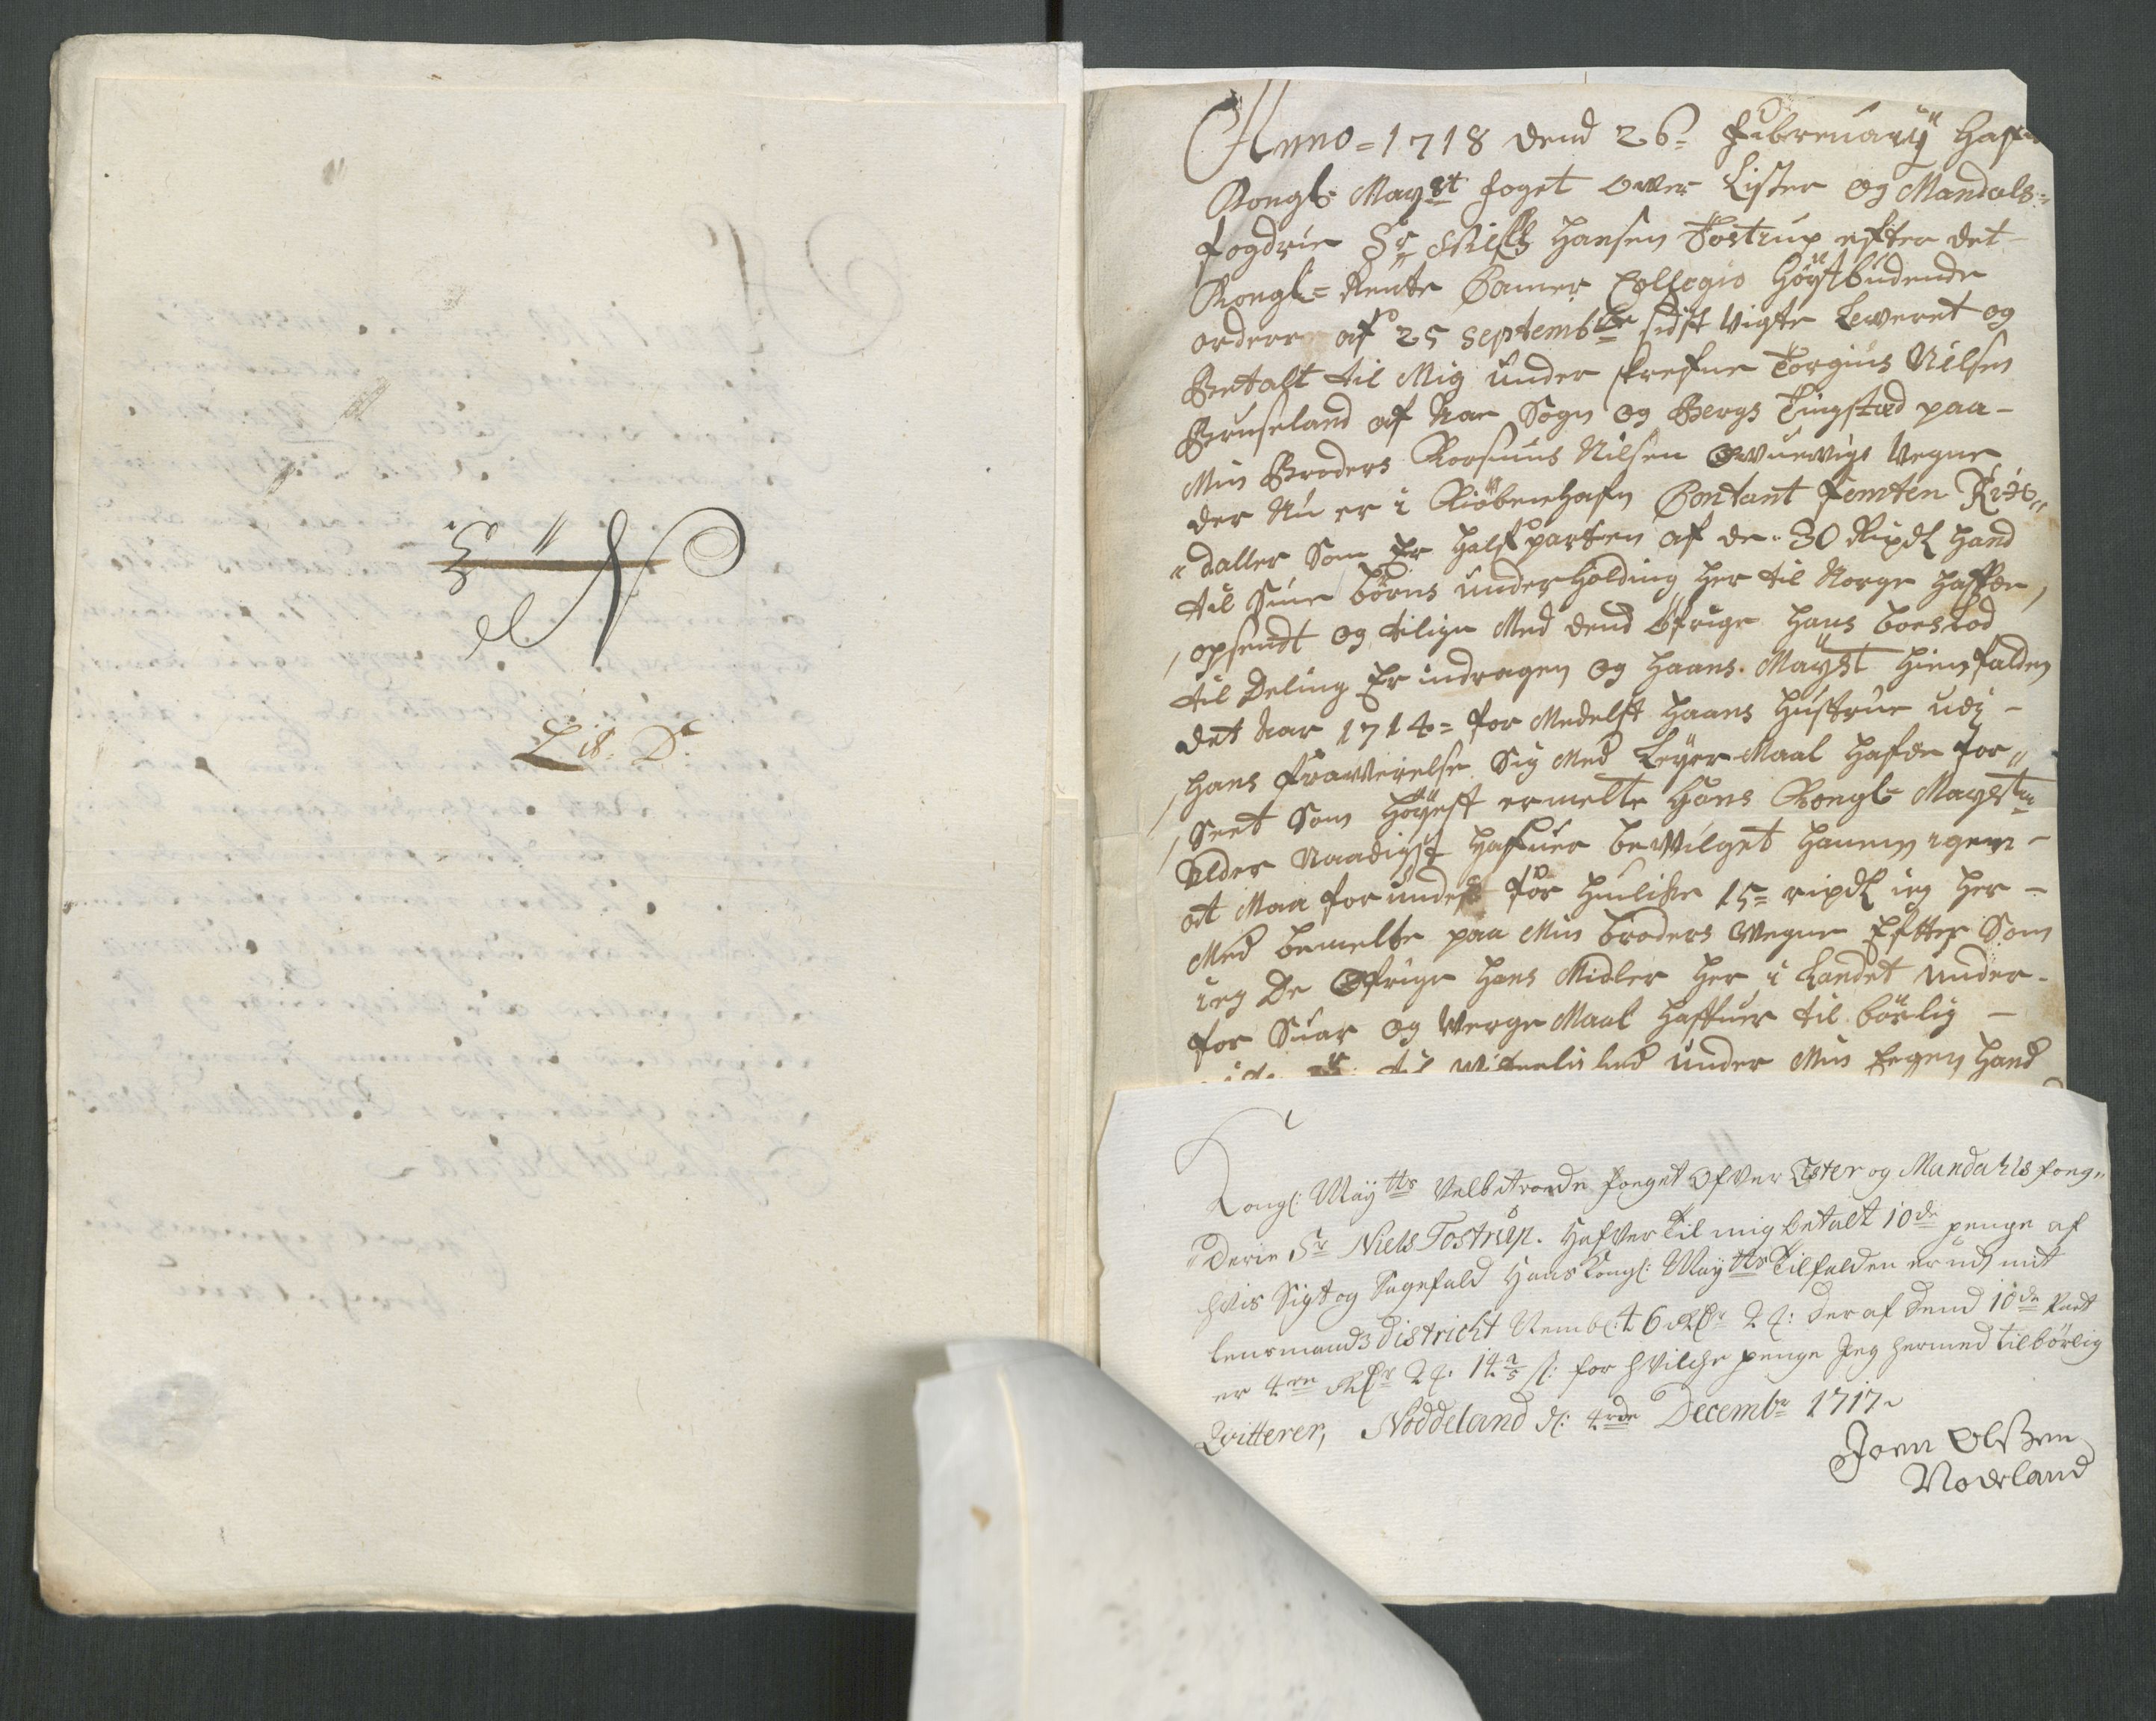 Lit. D.
Anno = 1718 dend 26= Februarij Hafr
Kongl: Mayst foget over Lister og Mandals=
fogdrie Sr Niels Hansen Tostrup efter det
Kongl= Rente Camer Collegio Höystbüdende
ordere af 25 Septembr sidst Rigte Leveret og
Betalt til Mig under skrefne Torgius Nilsen
af Sogn og Bergs Tingsted paa-
Min Broders Rasmus Nilsen Vegne
der Nu er i Kiöbenhafn Contant femten Rix"
"daller Som Er Halfparten af de 30 Rixdl Hand
til Sine börns underholding her til Norge Haffde
opsendt og tilige Med dend öfrige Hans boeslod
til Deling Er indragen og Haans Mayst Hiemfalden
det Aar 1714= for Medelst Haans Hustrue udj-
Hans fraverelse Sig Med Leyer Maal Hafde for"
Seet Som Höyest ermelte Hans Kongl= Mayst
Alder Naadigst Hafuer bevilget Hannem igen-
at Maa forundes for Huilke 15= rixdl ieg Her-
Med bemelte paa Min broders Vegne Efter Som
ieg De Öfrige Hans Midler Her i Landet under-
for Suar og Verge Maal Haffuer til börlig -
til under Min Eegen Hand
Kongl: Maytts Velbetroede foeget Ofver Lister og Mandahls foug"
"Derie Sr Niels Tostrup. Hafver Til mig betalt 10de penge af
hvis Sigt og Sagefald Hans Kongl: Maytts Tilfalden er udj mit
lensmands district Nembl: 46 Rdr 2 : Deraf Dend 10de Part
er 4re Rdr 2 . 14 2/5 s: for hvilche penge Jeg hermed tilbörlig
Qvitterer, Noddeland d: 4rde Decembr 1717
Joen Olssen
Noderland